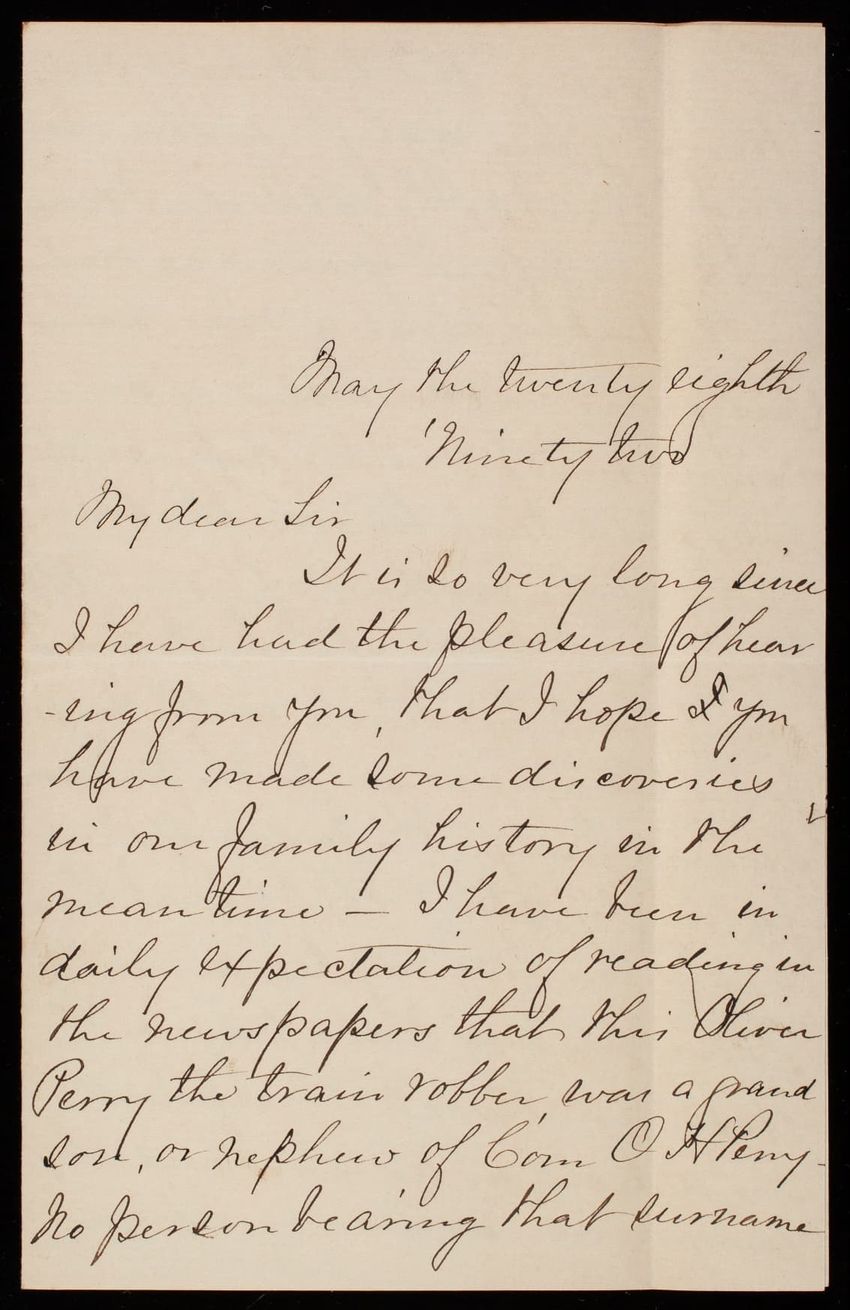 May the twenty eighth
'Ninety two
My dear Sir
It is so very long since
I have had the pleasure of hear
-ing from you, that I hope & you
have made some discoveries
in our family history in the
mean time — I have been in
daily expectation of reading in
the newspapers that this Oliver
Perry the train robber, was a grand
son, or nephew of Com O H Perry-
No person bearing that surname